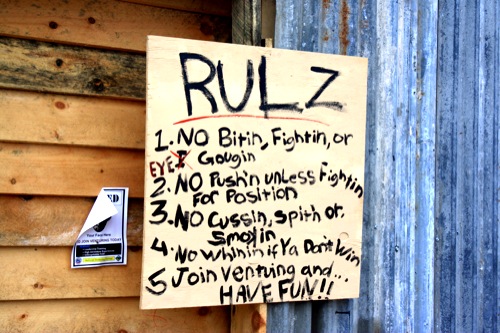 RULZ
1. NO Bitin, Fightin, or
EYE I Gougin
2. NO Push'n unless Fightin
For Position
3. NO Cussin, spith or,
Smokin
4. No whinin if Ya Don't Win
5 Join Ventring and...
HAVE FUN!!
ED
Your Face Here
JOIN VENTURING TODAY